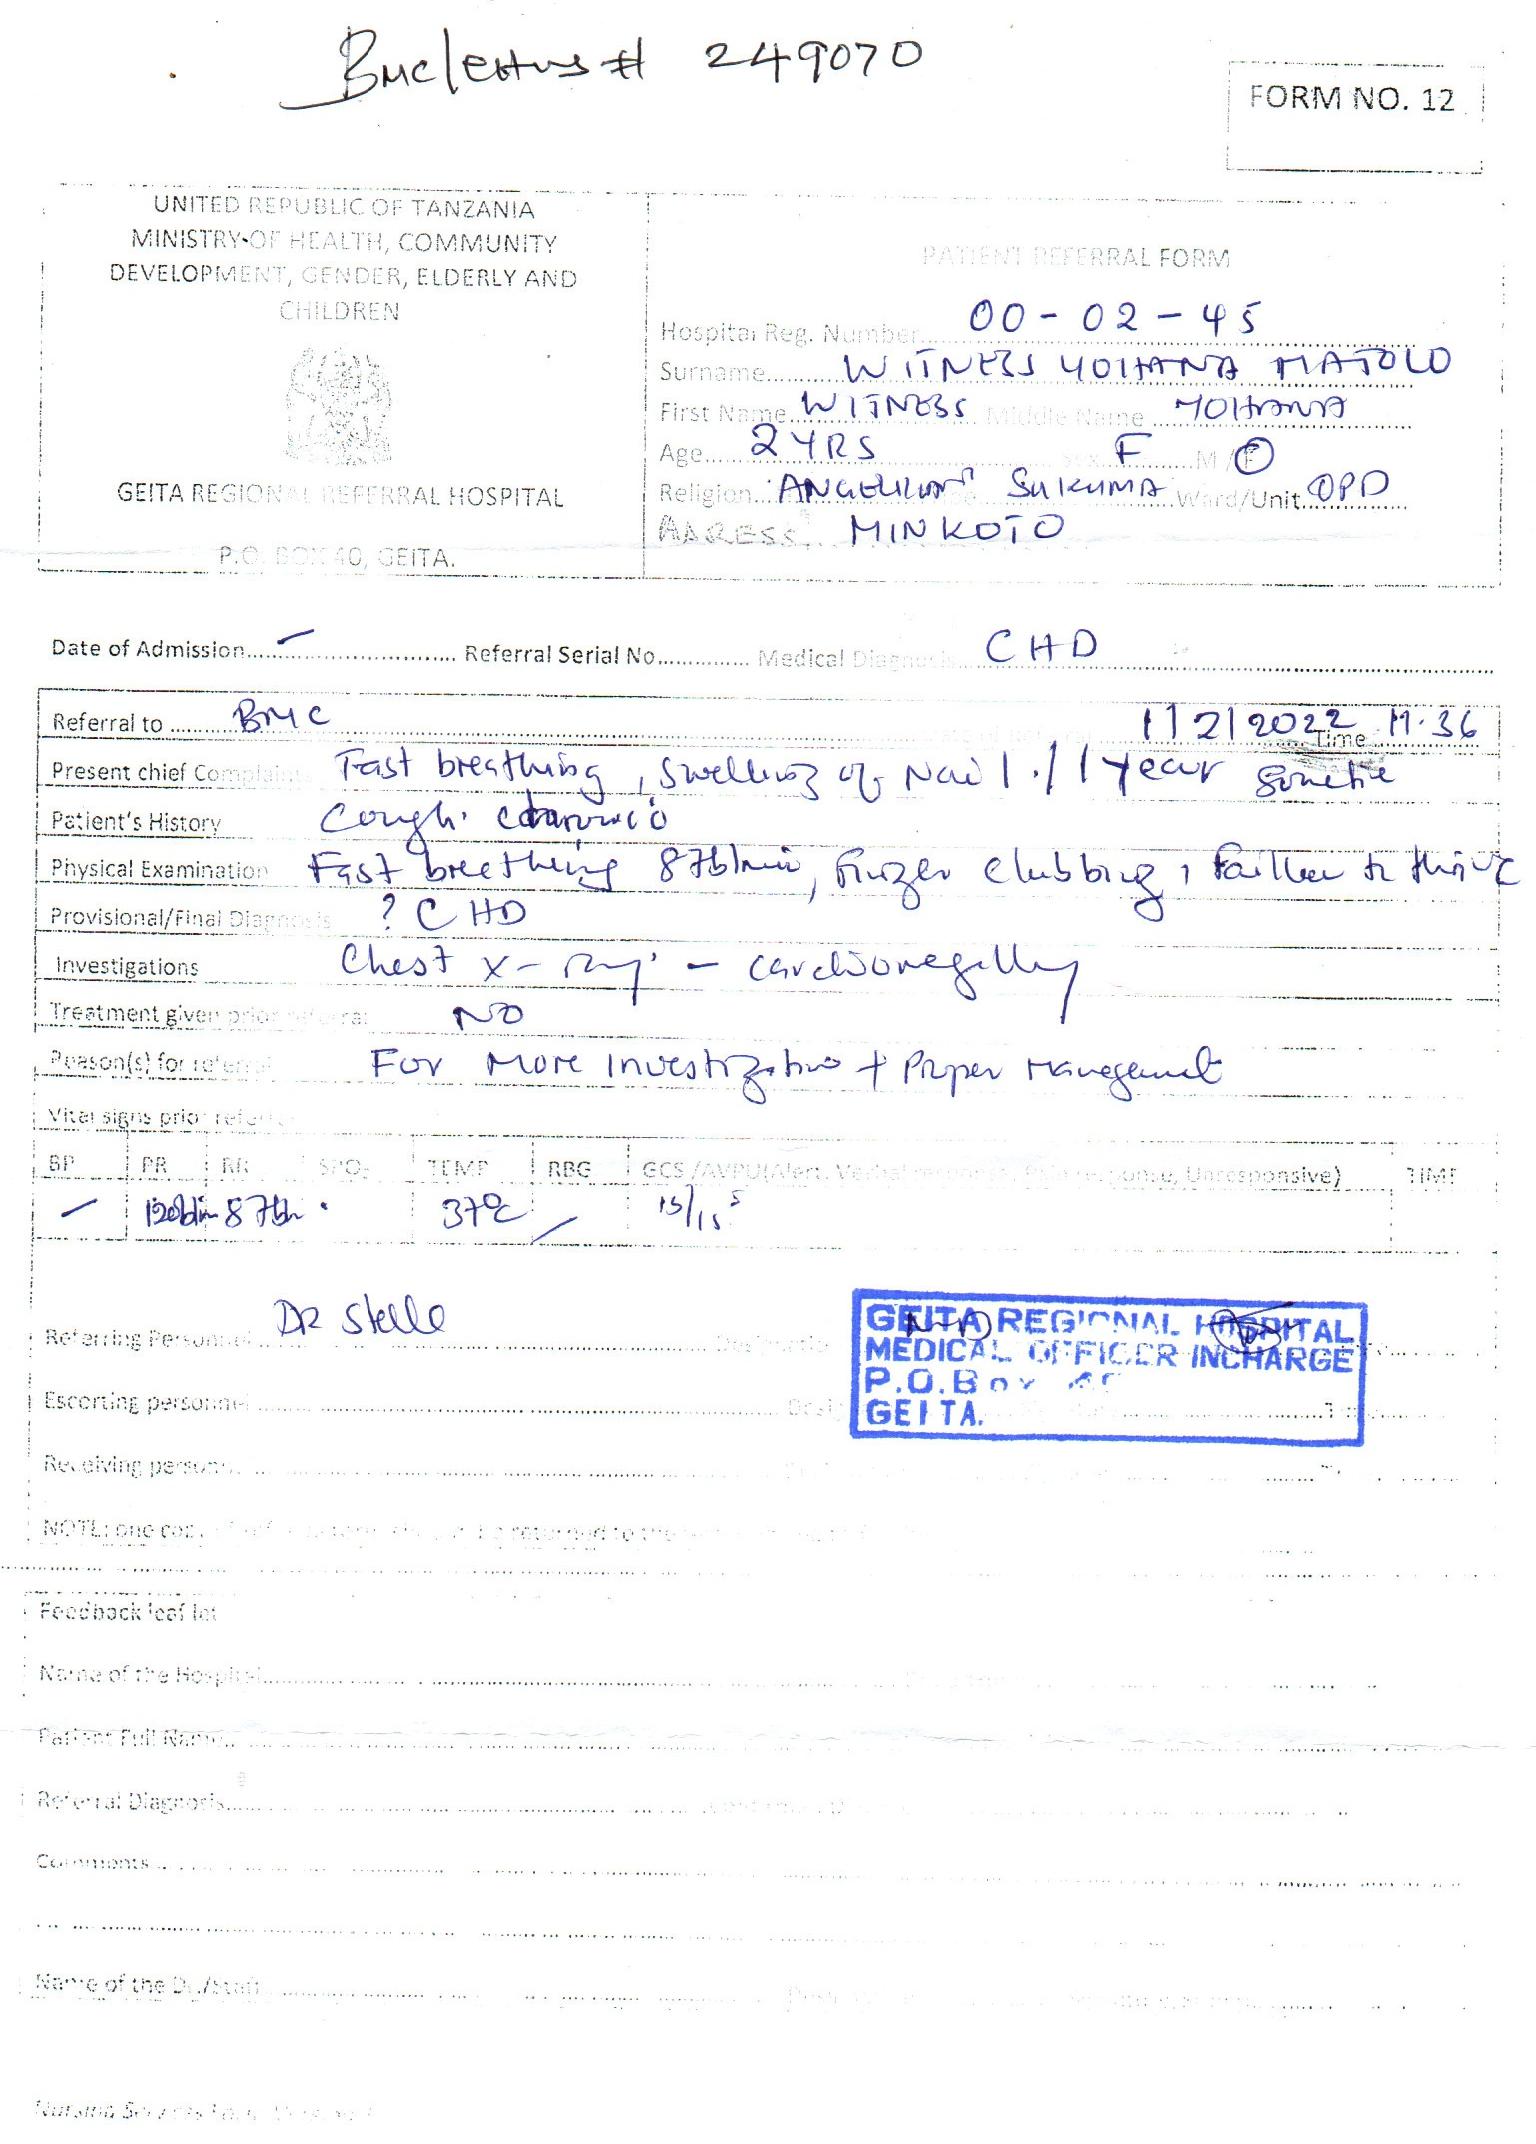 # 249070
FORM NO. 12
UNITED REPUBLIC OF TANZANIA
MINISTRY OF HEALTH, COMMUNITY
DEVELOPMENT, GENDER, ELDERLY AND
CHILDREN
GEITA REGIONAL REFERRAL HOSPITAL
P.O. BOX 40, GEITA.
PATIENT REFERRAL FORM
Hospital Reg. Number 00-02-45
Surname WITNESS YOHANA MATOLO
First Name WITNESS Middle Name YOHANA
Age 2 YRS Sex F M / F
Religion SUKUMA Ward/Unit OPD
ADRESS. MINKOTO
Date of Admission – Referral Serial No. Medical Diagnosis CHD
Referral to BMC 1/2/2022 Time 11.36
Present chief Complaint Fast breathing, swelling of Nail ./ 1 year
Patient's History Cough.
Physical Examination Fast breathing 87b/min, finger clubbing, failure to thrive
Provisional/Final Diagnosis ? CHD
Investigations Chest X-ray - cardiomegally
Treatment given prior referral NO
Reason(s) for referral For More Investigation + Proper Management
Vital signs prior referral
BP PR RR SPO2 TEMP RBG GCS /AVPU(Alert, Verbal response, Pain response, Unresponsive) TIME
– 120b/m 87b/m 37°C – 15/15
Referring Personnel DR Stella Designation MD
GEITA REGIONAL HOSPITAL
MEDICAL OFFICER INCHARGE
P.O.Box 40
GEITA.
Escorting personnel
Receiving personnel
NOTE: one copy returned to the
Feedback leaf let
Name of the Hospital
Patient Full Name
Referral Diagnosis
Comments
Name of the Dr./Staff